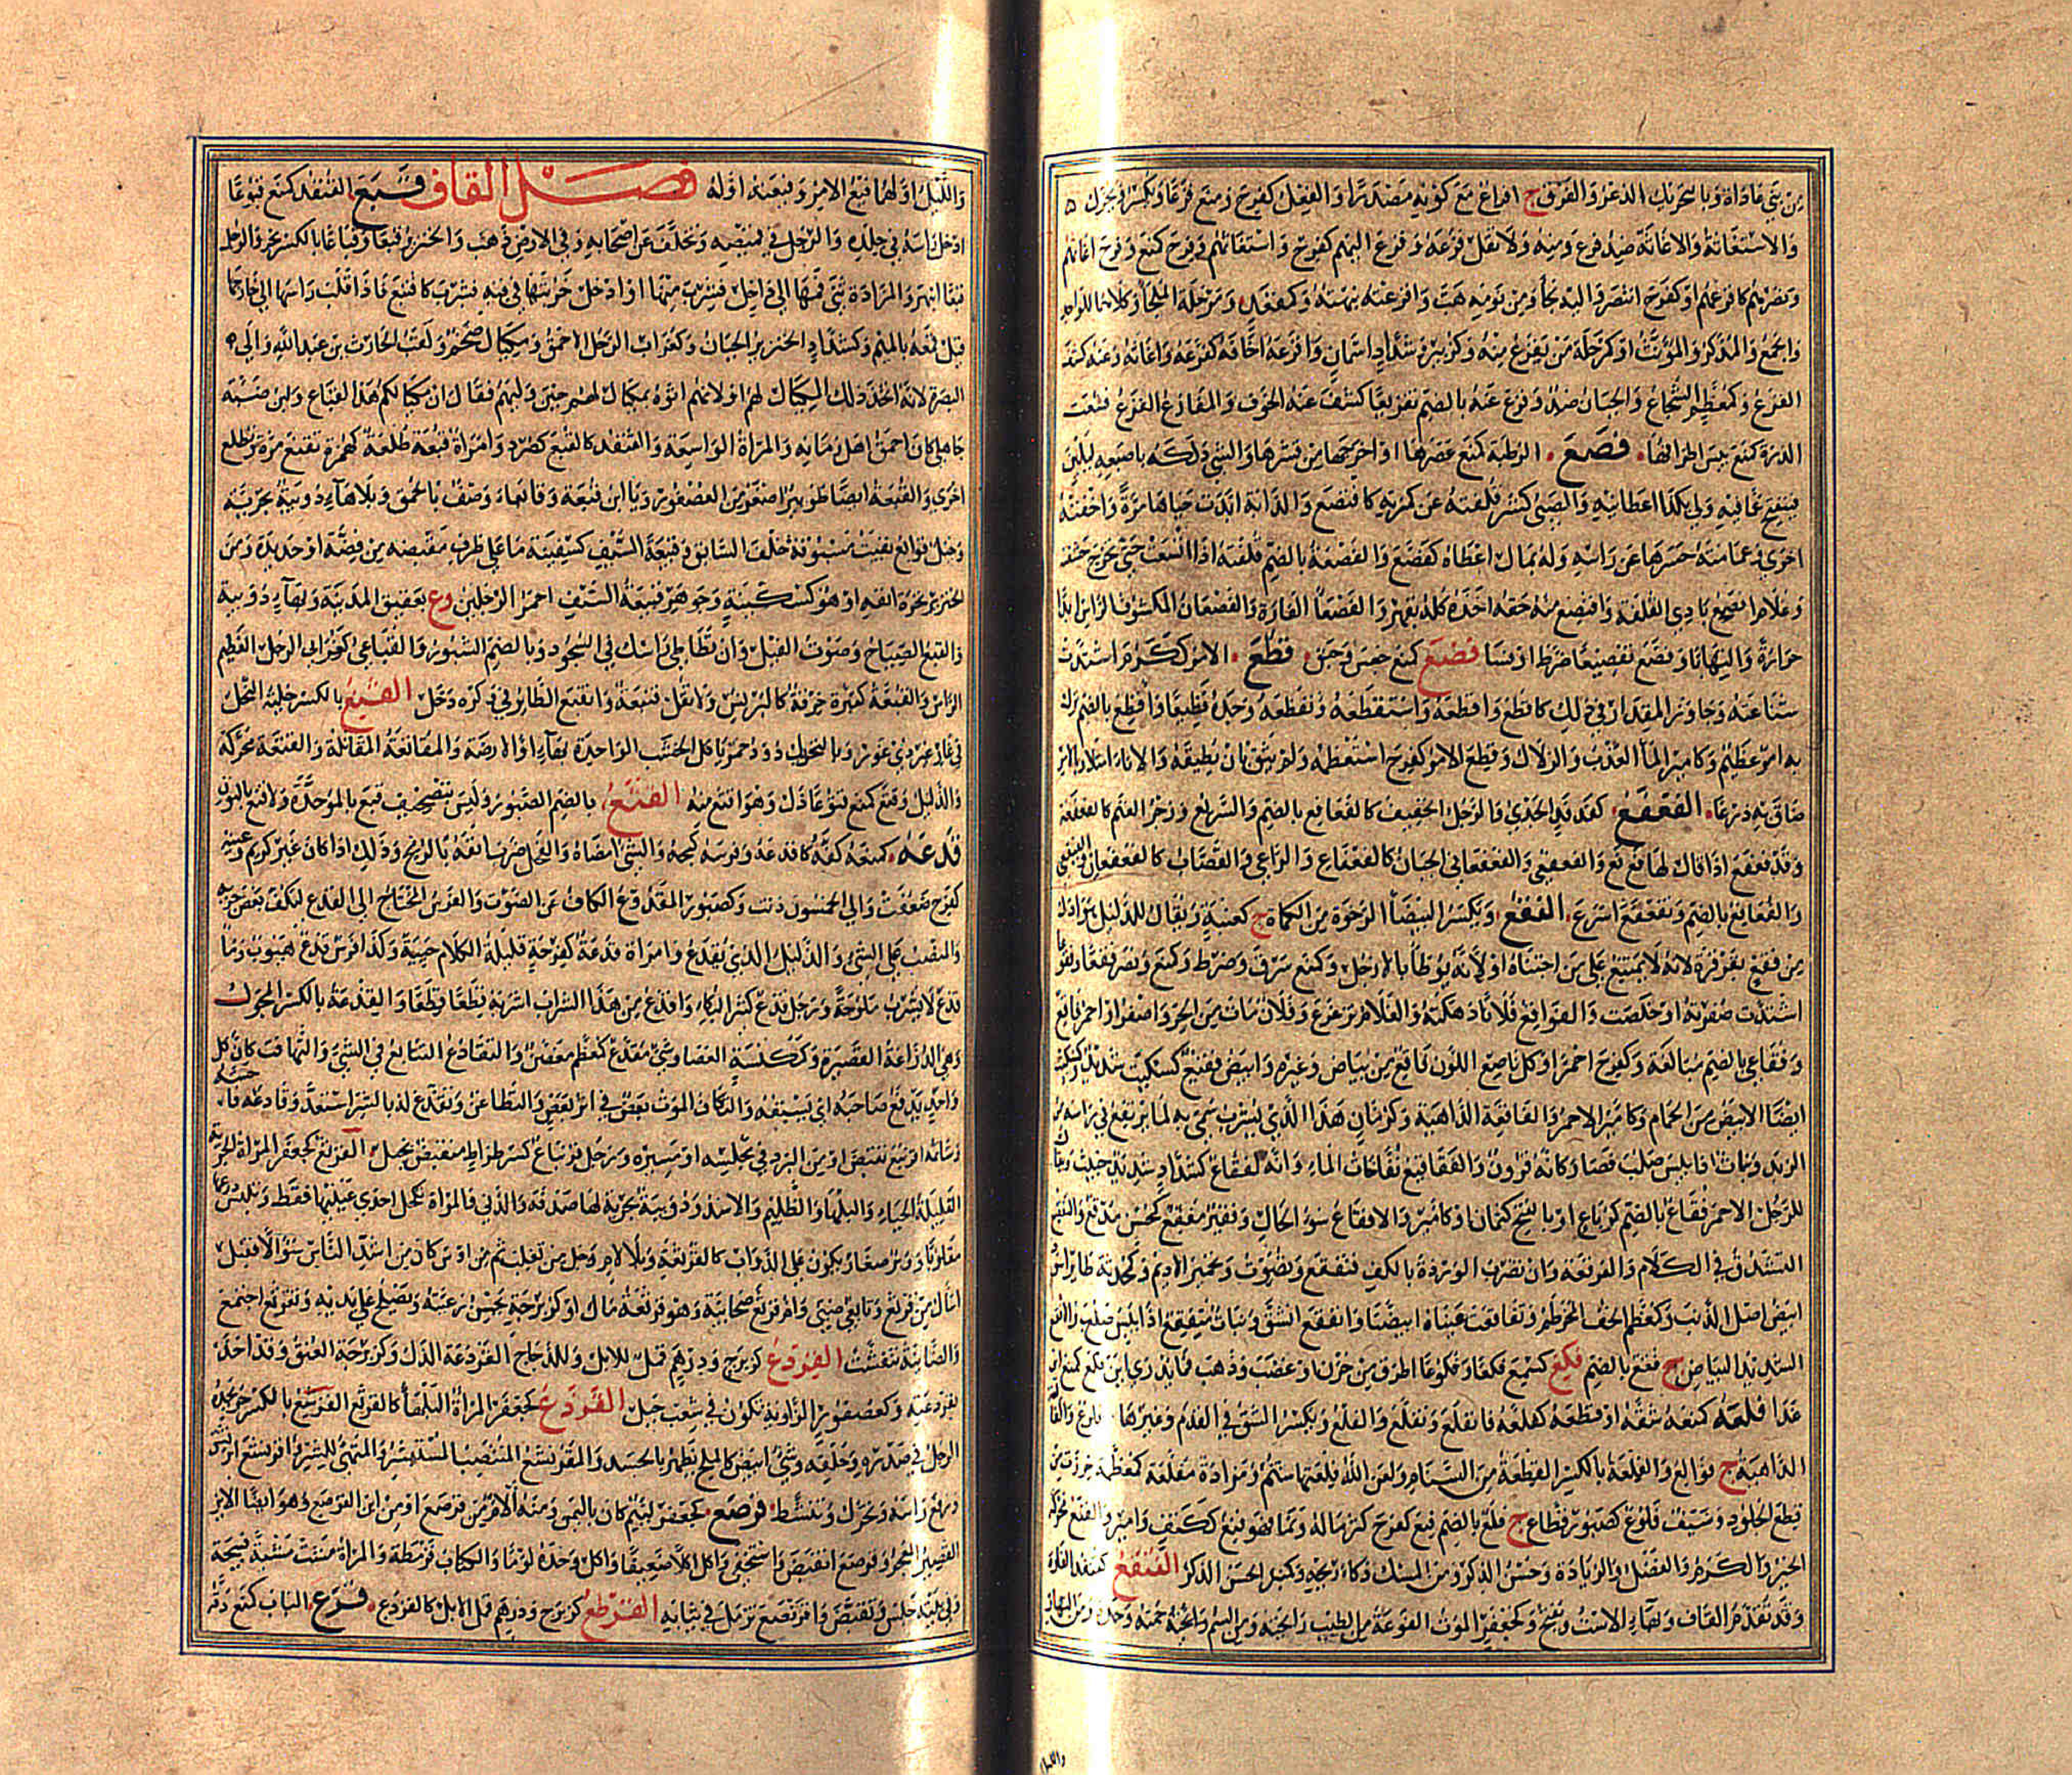 من بني عاداة وبالتحريك الذعر والفرق ج افزاع مع كونه مصدرا والفعل كفرح ومنع فزعا ويكسر ويحرك
والاستغاثة والاغاثة ضد فزع ومنه ولا تقل فزعه وفزع اليهم كفرح واستغاثهم وفزع كمنع وفرح اغاثهم
ونصرهم كافزعهم او كفرح انتصر واليه لجأ ومن نومه هب وافزعته نبهته وكمقعد ومرحلة الملجأ وكلاهما للواحد
والجمع والمذكر والمؤنث او كمرحلة من يفزع منه وكزبير وشداد اسمان وافزعه اخافه كفزعه واغاثه وعنه كشف
الفزع وكمعظم الشجاع والجبان ضد وفزع عنه بالضم تفزيعا كشف عنه الخوف والمفازع الفزع فشعت
الذرة كمنع يبس اطرافها . فصع . الرطبة كمنع عصرها او اخرجها من قشرها والشيء دلكه باصبعيه ليلين
فينفتح عما فيه ولي بكذا اعطانيه والصبي كشر قلفته عن كمرته كافتصع والدابة ابدت حياها مرة واخفته
اخرى وعمامته حسرها عن راسه وله بمال اعطاه كفصع والفصعة بالضم قلفته اذا اتسعت حتى تخرج حشفته
وغلام افصع بادي القلفة وافتصع منه حقه اخذه كله بقهر والفصعاء الفارة والفصعان المكشوف الراس ابدا
حرارة والتهابا وفصع تفصيعا ضرط او فسا فضع كمنع جعس وحبق . فظع . الامر ككرم اشتدت
شناعته وجاوز المقدار في ذلك كافظع وافظعه واستفظعه وتفظعه وجده فظيعا وافظع بالضم نزل
به امر عظيم وكامير الماء العذب والزلال وفظع الامر كفرح استعظمه ولم يثق بان يطيقه والاناء امتلا وبالامر
ضاق به ذرعا . الفعفع . كفدفد الجدي والرجل الخفيف كالفعافع بالضم والسريع وزجر الغنم كالفعفعة
وقد فعفع اذا قال لها فع فع والفعفعي والفعفعاني الجبان كالفعفاع والراعي والقصاب كالفعفعان
والفعافع بالضم وتفعفع اسرع . الفقع . ويكسر البيضاء الرخوة من الكماة ج كعنبة ويقال للذليل هو اذل
من فقع بقرقرة لانه لا يمتنع على من اجتناه او لانه يوطأ بالارجل وكمنع سرق وضرط وكمنع ونصر فقعا وفقوعا
اشتدت صفرته او خلصت والفواقع فلانا دهكته والغلام ترعرع وفلان مات من الحر واصفر او احمر فاقع
وفقاعي بالضم مبالغة وكفرح احمر او كل ناصع اللون فاقع من بياض وغيره وابيض فقيع كسكيت شديد
ايضا الابيض من الحمام وكامير الاحمر والفاقعة الداهية وكرمان هذا الذي يشرب سمي به لما يرتفع في راسه من
الزبد ونبات اذا يبس صلب فصار كانه قرون والفقاقيع نفاخات الماء وانه لفقاع كشداد شديد خبيث
للرجل الاحمر فقاع بالضم كرباع او بالفتح كثمان وكامير والافقاع سوء الحال وفقير مفقع كمحسن مدقع والتفقيع
التشدق في الكلام والفرقعة وان تضرب الوردة بالكف فتفقع وتصوت وتحمير الاديم
ابيض اصل الذنب وكمعظم الخف المخرطم وتفاقعت عيناه ابيضتا وانفقع انشق ونبات متفقع اذا يبس صلب
الشديد البياض ج فقع بالضم فكع كسمع فكعا وفكوعا اطرق من حزن او غضب وذهب فما يدري اين فكع كمنع
غدا فلعه كمنعه شقه او قطعه كفلعه فانفلع وتفلع والفلع ويكسر الشق في القدم وغيرها ج فلوع
الداهية ج فوالع والفلعة بالكسر القطعة من السنام ولعن الله فلعتها شتم ومزادة مفلعة كمعظمة خرزت من
قطع الجلود وسيف فلوع كصبور قطاع ج فلع بالضم فنع كفرح كثر ماله ونما فهو فنع ككتف وامير والفنع محركة
الخير والكرم والفضل والزيادة وحسن الذكر ومن المسك ذكاء ريحه الحسن الذكر الفنقع كقنفذ الفارة
وقد تقدم القاف وبهاء الاست وتفتح وكجعفر الموت الفوعة من الطيب رائحته ومن السم وائحته حمته وحده ومن النهار
والليل
والليل اولهما فيع الامر وفيعته اوله فصل القاف قبع القنفذ كمنع قبوعا
ادخل راسه في جلده والرجل في قميصه وتخلف عن اصحابه وفي الارض ذهب والخنزير قبعا وقباعا بالكسر نخر والرجل
قبعا انبهر والمزادة ثنى فمها الى داخل فيشرب منها او ادخل خربتها في فيه فشرب كاقتبع فاذا قلب راسها الى خارجها
قيل قمعه بالميم وكشداد الخنزير الجبان وكغراب الرجل الاحمق ومكيال ضخم ولقب الحارث بن عبد الله والي
البصرة لانه اتخذ ذلك المكيال لهم او لانهم اتوه بمكيال لهم حين وليهم فقال ان مكيالكم هذا لقباع وابن ضبة
جاهلي كان احمق اهل زمانه والمراة الواسعة والقنفذ كالقبع كصرد وامراة قبعة طلعة كهمزة تقبع مرة وتطلع
اخرى والقبعة ايضا طوير اصغر من العصفور ويا ابن قبعة وقابعاء وصف بالحمق وبلا هاء دويبة بحرية
وخيل قوابع بقيت مسبوقة خلف السابق وقبيعة السيف كسفينة ما على طرف مقبضه من فضة او حديدة ومن
الخنزير نخرة انفه او هو كسكينة وجوهر قبيعة السيف احمر الرجلين وع بعقيق المدينة وبهاء دويبة
والقبع الصياح وصوت الفيل وان تطاطئ راسك في السجود وبالضم الشبور والقباعي كغرابي الرجل العظيم
الراس والقبعة كقبرة خرقة كالبرنس ولا تقل قنبعة وانقبع الطائر في وكره دخل القتع بالكسر خلية النحل
في غار غير ذي غور وبالتحريك دود حمر ياكل الخشب الواحدة بهاء او الارضة والمقاتعة المقاتلة والقتعة محركة
والذليل وقتع كمنع قتوعا ذل وهو اقتع منه القثع بالضم الشبور وليس بتصحيف قبع بالموحدة ولا قنع بالنون
قدعه . كمنعه كفه كاقدعه وفرسه كبحه والشيء امضاه والفحل ضرب انفه بالرمح وذلك اذا كان غير كريم وعينه
كفرح ضعفت ولي الخمسون دنت وكصبور المقدوع الكاف عن الصوت والفرس المحتاج الى القدع ليكف بعض جريه
والمنصب على الشيء والذليل الذي يقدع وامراة قدعة كفرحة قليلة الكلام حيية وكذا فرس قدوع هيوب وماء
قدع لا يشرب ملوحة ورجل قدع كثير البكاء واقدع من هذا الشراب اشربه قطعا قطعا والقدعة بالكسر المجول
وهي الدراعة القصيرة وكمكنسة العصا وشيء مقدع كمعظم مغضن والتقادع التتابع في الشيء والتهافت كان كل
واحد يدفع صاحبه ان يسبقه والتكاف الموت بعض في اثر بعض والتطاعن وتقدع له بالشر استعد وقادعه
وشاتمه اقرنبع تقبض او من البرد في مجلسه او مسيره ورجل قرنباع كسرطراط منقبض بخيل . القرثع كجعفر المراة الجرية
القليلة الحياء والبلهاء والظليم والاسد ودويبة بحرية لها صدفة والذي في المراة تكحل احدى عينيها فقط وتلبس درعها
مقلوبا ووبر صغار يكون على الدواب كالقرثعة وبلا لام رجل من تغلب ثم من اوس كان من اشد الناس سؤالا فقيل
اسال من قرثع وتابعي ضبي وام قرثع صحابية وهو قرثعة مال او كزبرجة يحسن رعيته ويصلح على يديه وتقرثع اجتمع
والضائنة تنفشت القردع كزبرج ودرهم قمل للابل وللدجاج القردعة الذل وكزبرجة العنق وقد اخذه
بقردعته وكعصفور الزاوية تكون في شعب جبل القرذع كجعفر المراة البلهاء كالقرثع القرشع بالكسر حر يجده
الرجل في صدره وحلقه وشيء ابيض كالملح يظهر بالجسد والمقرنشع المنتصب المستبشر والمتهيئ للشر اقرنشع
ورفع راسه وتحرك وتنشط . قرصع . كجعفر لئيم كان باليمن ومنه الام من قرصع او من ابن القرصع وهو ايضا الاير
القصير المعجر وقرصع انقبض واستخفى واكل اكلا ضعيفا واكل وحده لؤما والكتاب قرمطه والمراة مشت مشية قبيحة
وفي بيته جلس وتقبض واقرنصع تزمل في ثيابه القرطع كزبرج ودرهم قمل الابل كالقردع . قزع . الباب كمنع دقه